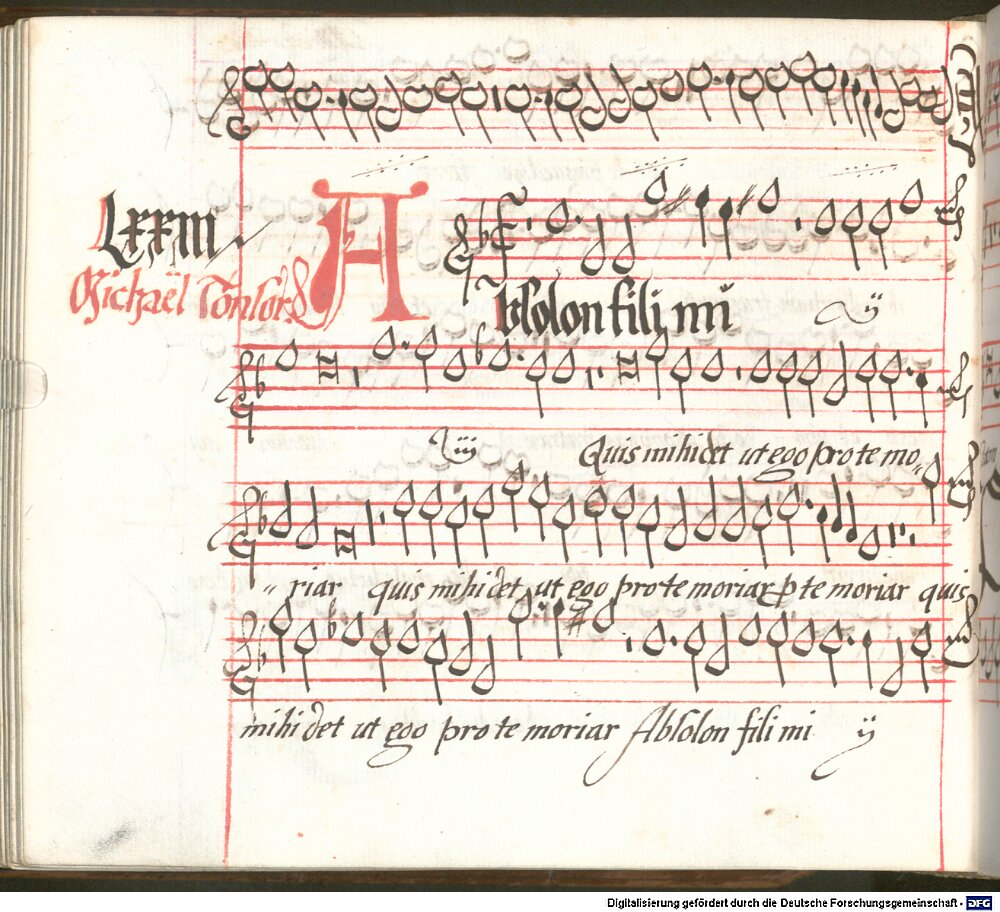 LXXIII
Michaël Tonsor
Absolon fili mi ij
iij Quis mihi det ut ego pro te mo„
„riar quis mihi det ut ego pro te moriar p te moriar quis
mihi det ut ego pro te moriar Absolon fili mi ij
Digitalisierung gefördert durch die Deutsche Forschungsgemeinschaft - DFG